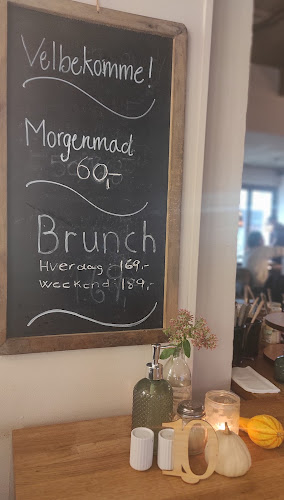 Velbekomme!
Morgenmad
60,-
Brunch
Hverdag 169,-
Weekend 189,-
10